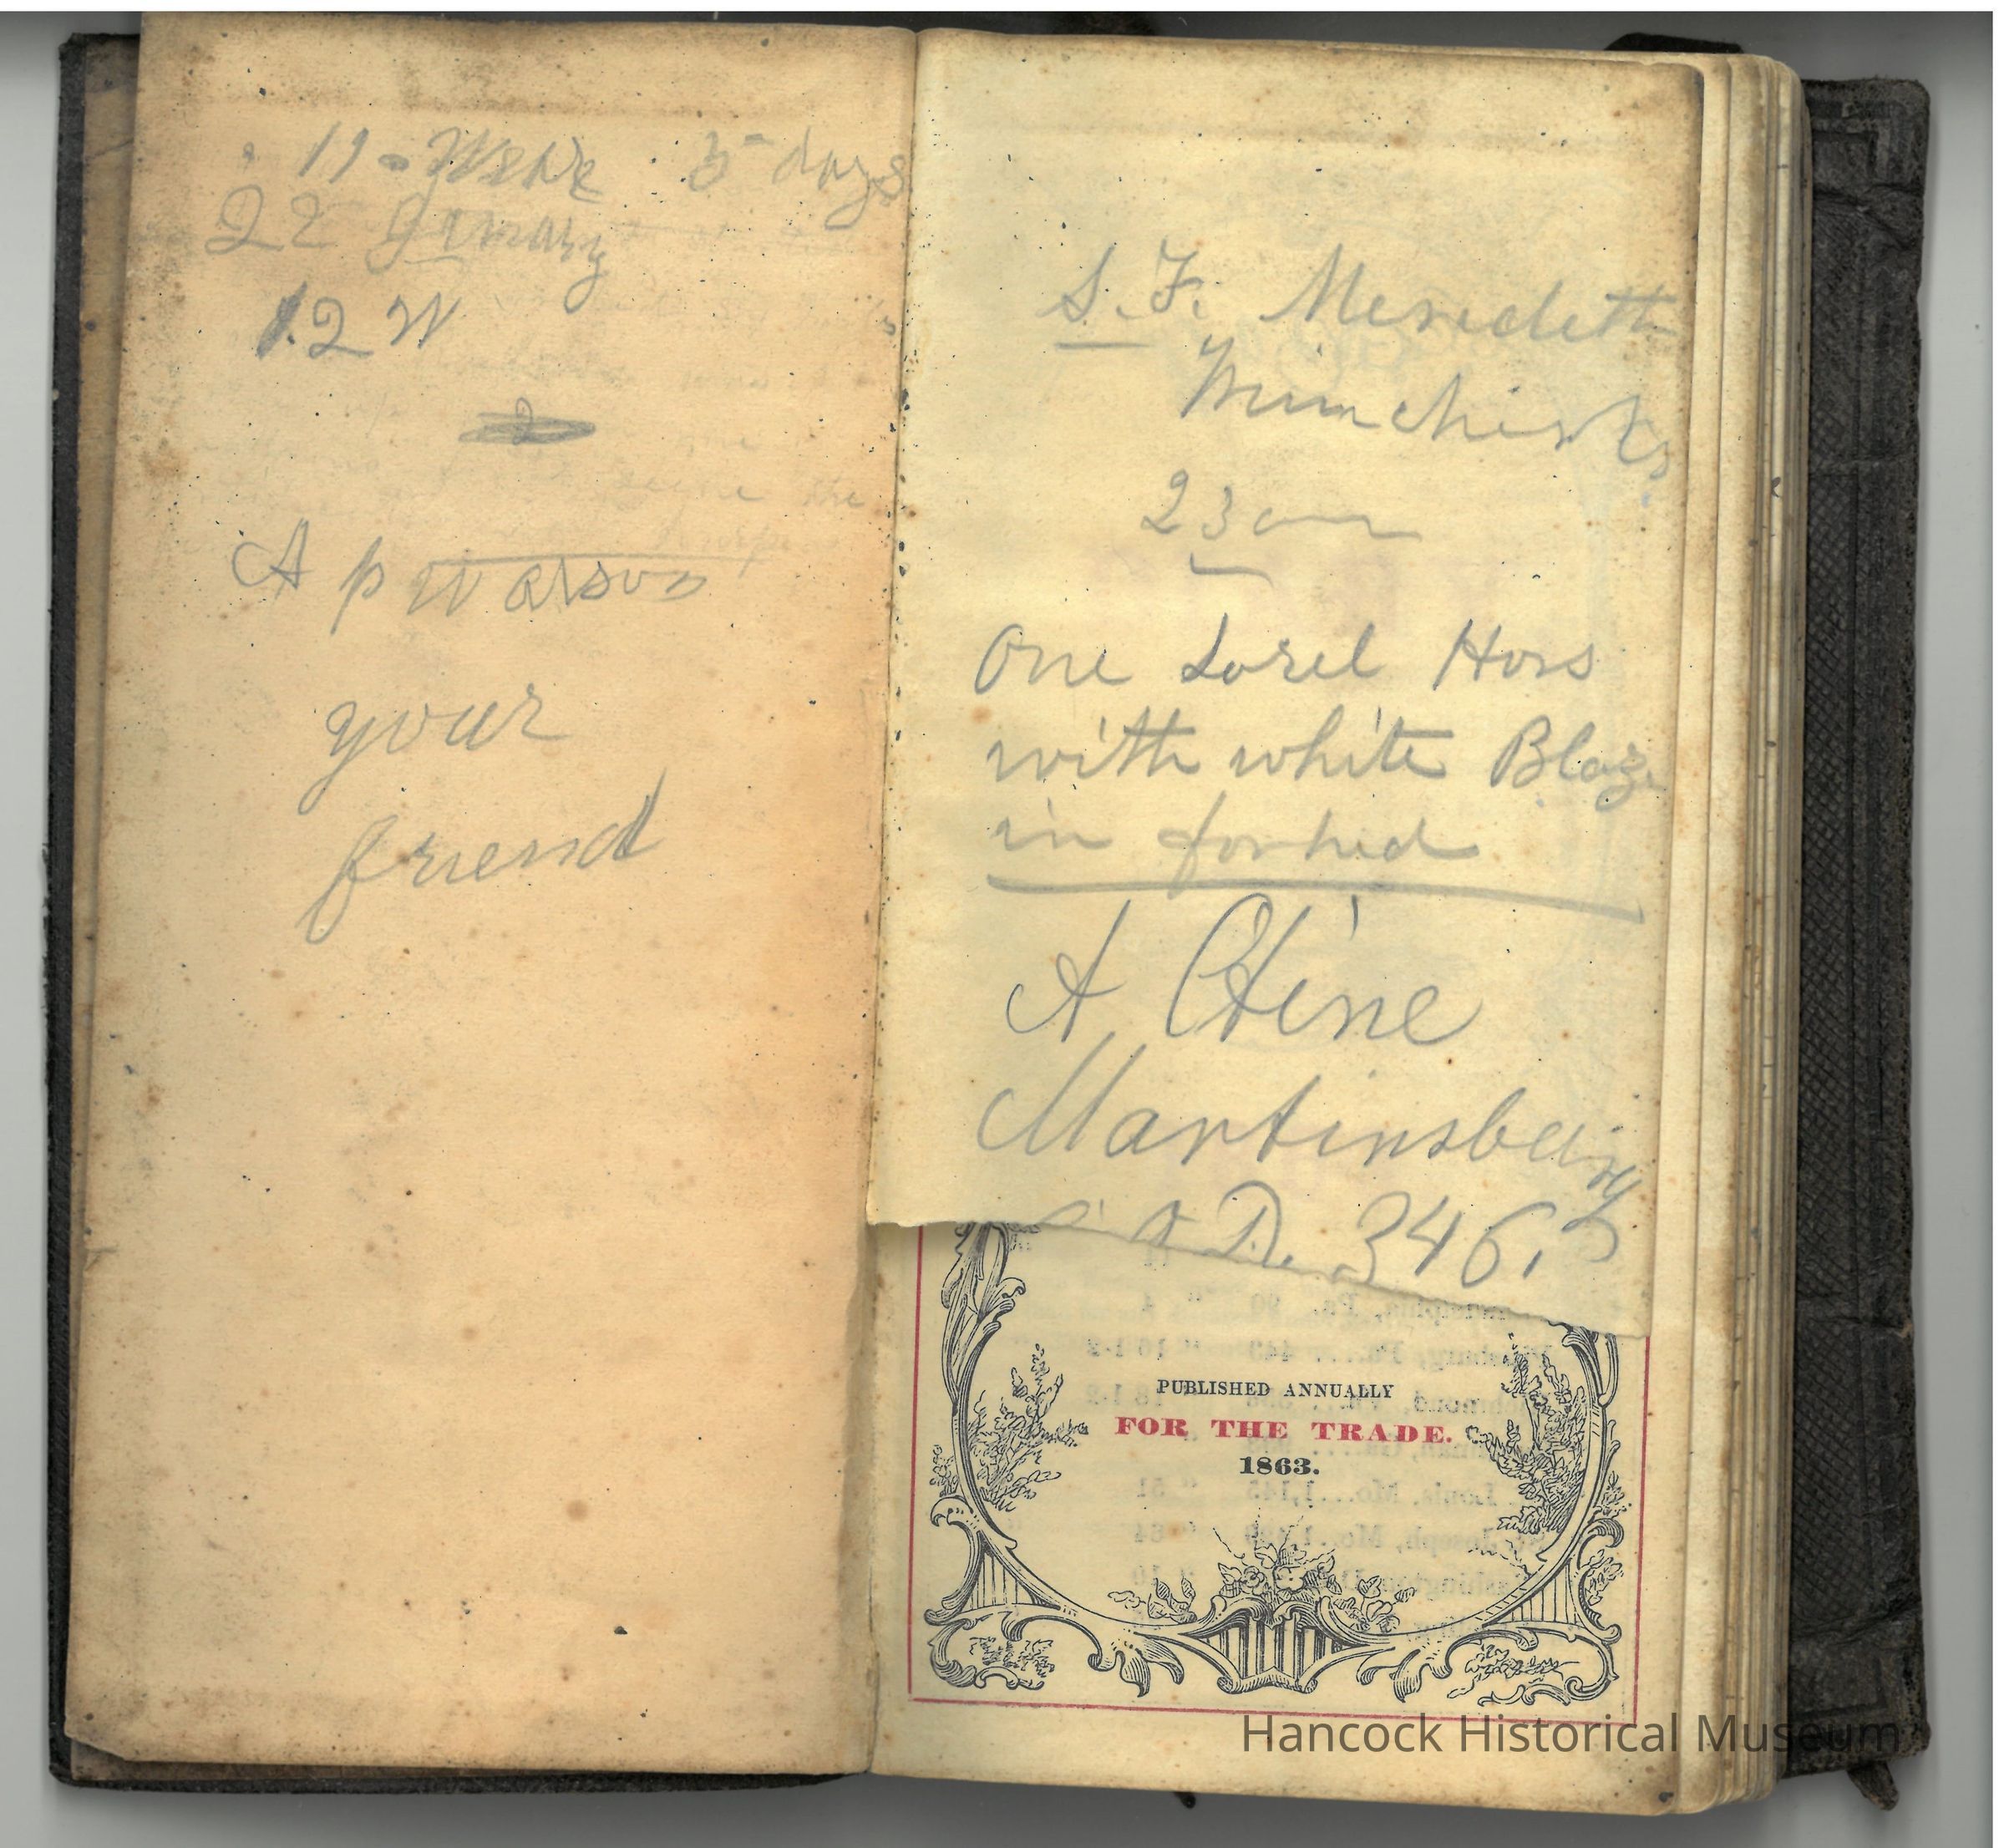 11 - Weke 5 days
22 January
12 W
2
A p Watson
your
friend
S. F. Meredith
Winchist
23
One Sorel Hors
with white Blaz
in forhed
A Cline
Martinsburg
O. D. 346.
PUBLISHED ANNUALLY
FOR THE TRADE.
1863.
Hancock Historical Museum